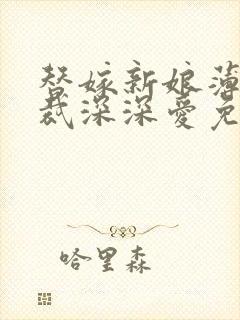 替嫁新娘薄
裁深深爱免
哈里森